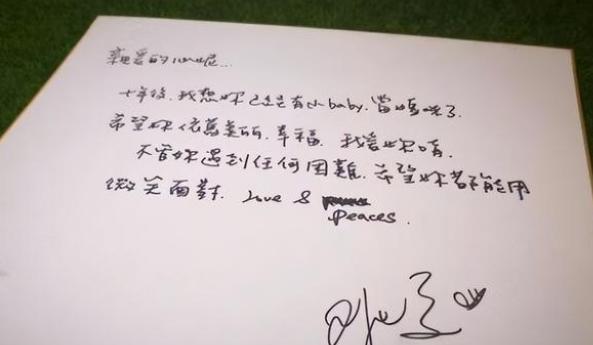 親愛的心妮...
十年後,我想妳已經是有小baby.當媽咪了.
希望妳依舊美麗.幸福. 我愛妳唷.
不管妳遇到任何困難.希望妳都能用
微笑面對. Love &
Peaces.